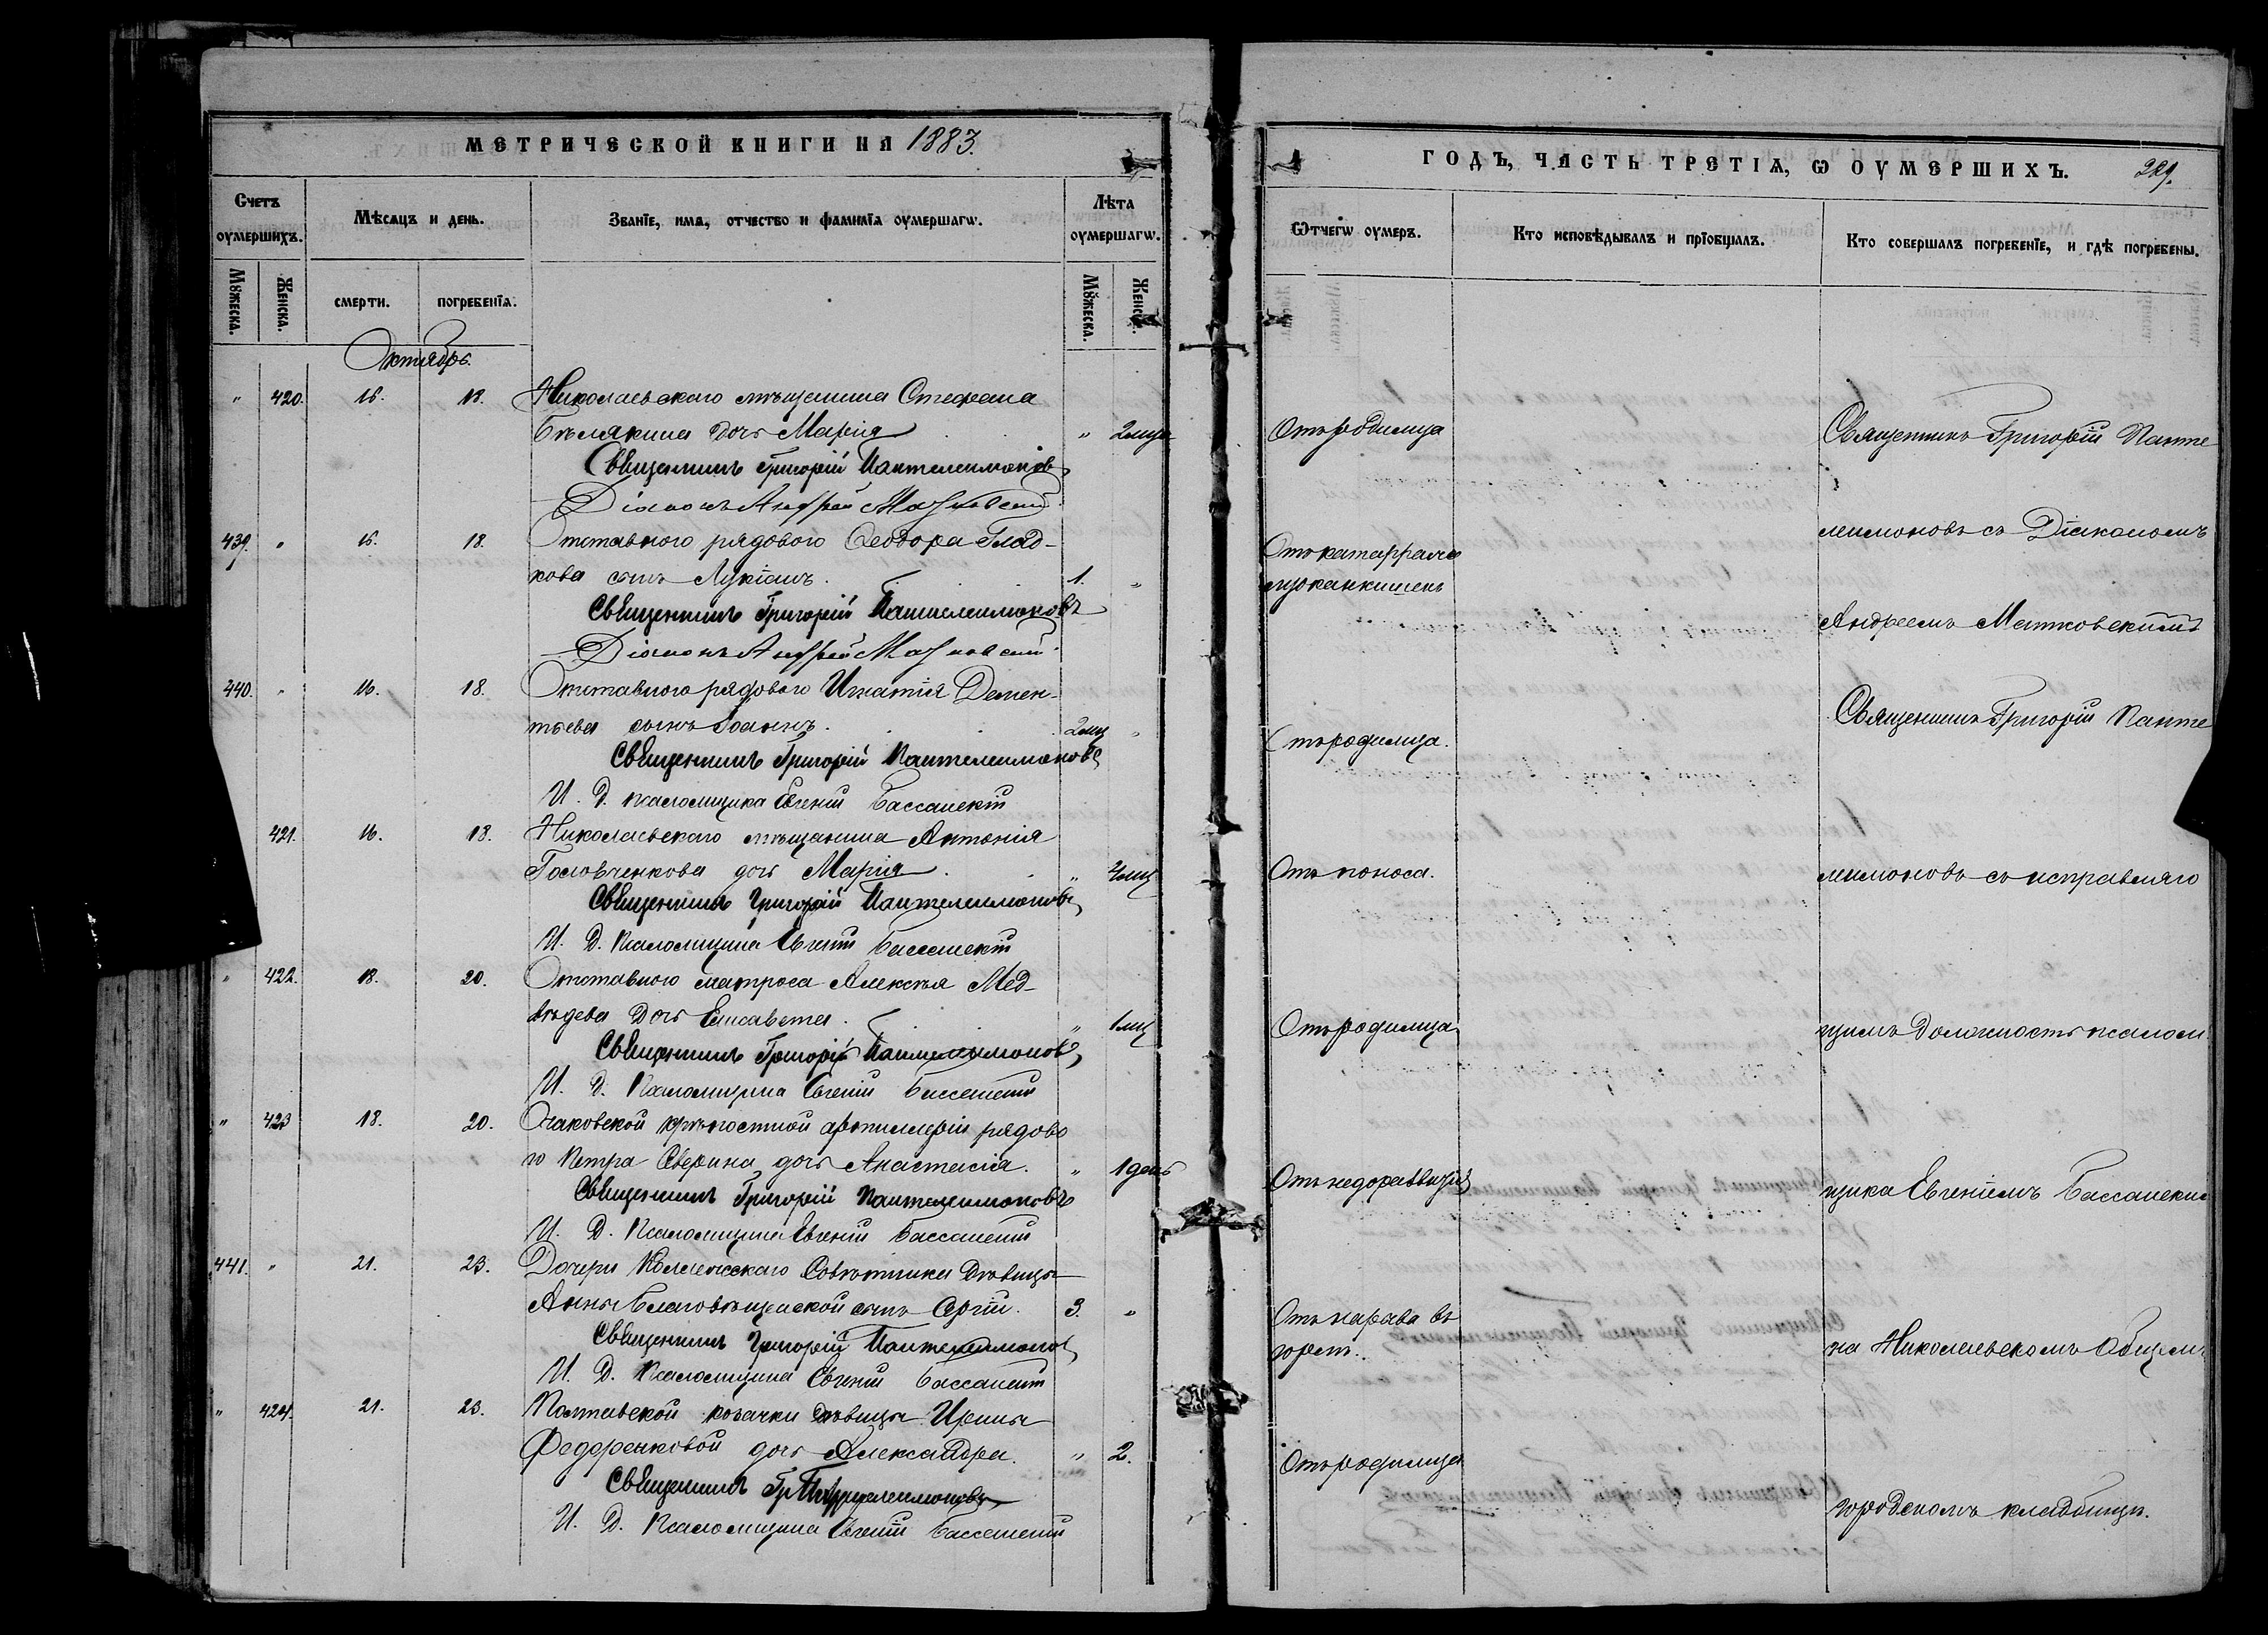 МЕТРИЧЕСКОЙ КНИГИ НА 1883.
Счетъ оумершихъ.
Мѣсяцъ и день.
Званіе, имя, отчество и фамилія оумершагѡ.
Лѣта оумершагѡ.
Мꙋжеска.
Женска.
смерти.
погребенія.
Мꙋжеска.
Женска.
Октябрь.
" 420. 16. 18. Николаевскаго мѣщанина Стефана
Бѣлякина дочь Марія " 2 мца
Священникъ Григорій Пантелеимоновъ
Діаконъ Андрей Матковскій
439. " 16. 18. Отставного рядового Ѳеодора Глад-
кова сынъ Лукіанъ. 1. "
Священникъ Григорій Пантелеимоновъ
Діаконъ Андрей Матковскій
440. " 16. 18. Отставного рядового Игнатія Демен-
тьева сынъ Іоаннъ. 2 мц "
Священникъ Григорій Пантелеимоновъ
И. Д. псаломщика Евгеній Бассанскій
421. 16. 18. Николаевскаго мѣщанина Антонія
Головченкова дочь Марія. " 4 мц
Священникъ Григорій Пантелеимоновъ
И. Д. Псаломщика Евгеній Бассанскій
" 422. 18. 20. Отставного матроса Алексѣя Мед-
вѣдева дочь Елисавета. " 1 мц
Священникъ Григорій Пантелеимоновъ
И. Д. Псаломщика Евгеній Бассанскій
" 423 18. 20. Очаковской крѣпостной артиллеріи рядово
го Петра Сверина дочь Анастасія. " 1 день
Священникъ Григорій Пантелеимоновъ
И. Д. Псаломщика Евгеній Бассанскій
441. " 21. 23. Дочери Коллежскаго Совѣтника дѣвицы
Анны Благовѣщенской сынъ Сергій. 3. "
Священникъ Григорій Пантелеимоновъ
И. Д. Псаломщика Евгеній Бассанскій
" 424. 21. 23. Полтавской козачки дѣвицы Ирины
Федоренковой дочь Александра. " 2.
Священникъ Гр Пантелеимоновъ
И. Д. Псаломщика Евгеній Бассанскій
ГОДЪ, ЧАСТЬ ТРЕТІѦ, Ѡ ОУМЕРШИХЪ. 229.
Ѿчегѡ оумеръ.
Кто исповѣдывалъ и пріобщалъ.
Кто совершалъ погребеніе, и гдѣ погребены.
Отъ родимца
Священникъ Григорій Панте
леимоновъ съ Діакономъ
Отъ катарральн
Андреемъ Матковскимъ
Отъ родимца.
Священникъ Григорій Панте
Отъ поноса.
леимоновъ съ исправляю
Отъ родимца
щимъ должность псалом
Отъ недоразвитія
щика Евгеніемъ Бассанским
Отъ нарыва въ
горлѣ.
на Николаевскомъ Общемъ
Отъ родимца
городскомъ кладбищѣ.